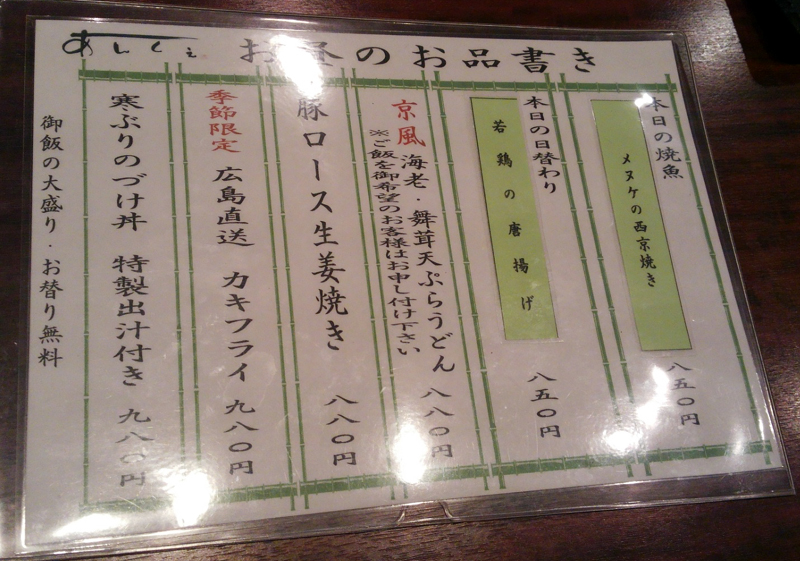 お昼のお品書き
あしくぇ
本日の焼魚
メヌケの西京焼き
八五〇円
本日の日替わり
若鶏の唐揚げ
八五〇円
京風 海老・舞茸天ぷらうどん 八八〇円
※ご飯を御希望のお客様はお申し付け下さい
豚ロース生姜焼き 八八〇円
季節限定 広島直送 カキフライ 九八〇円
寒ぶりのづけ丼 特製出汁付き 九八〇円
御飯の大盛り・お替り無料